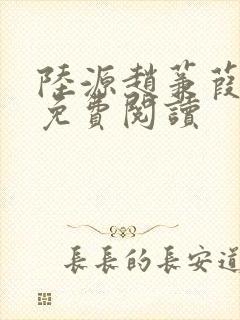 陸源趙蒹葭
免費閱讀
長長的長安道